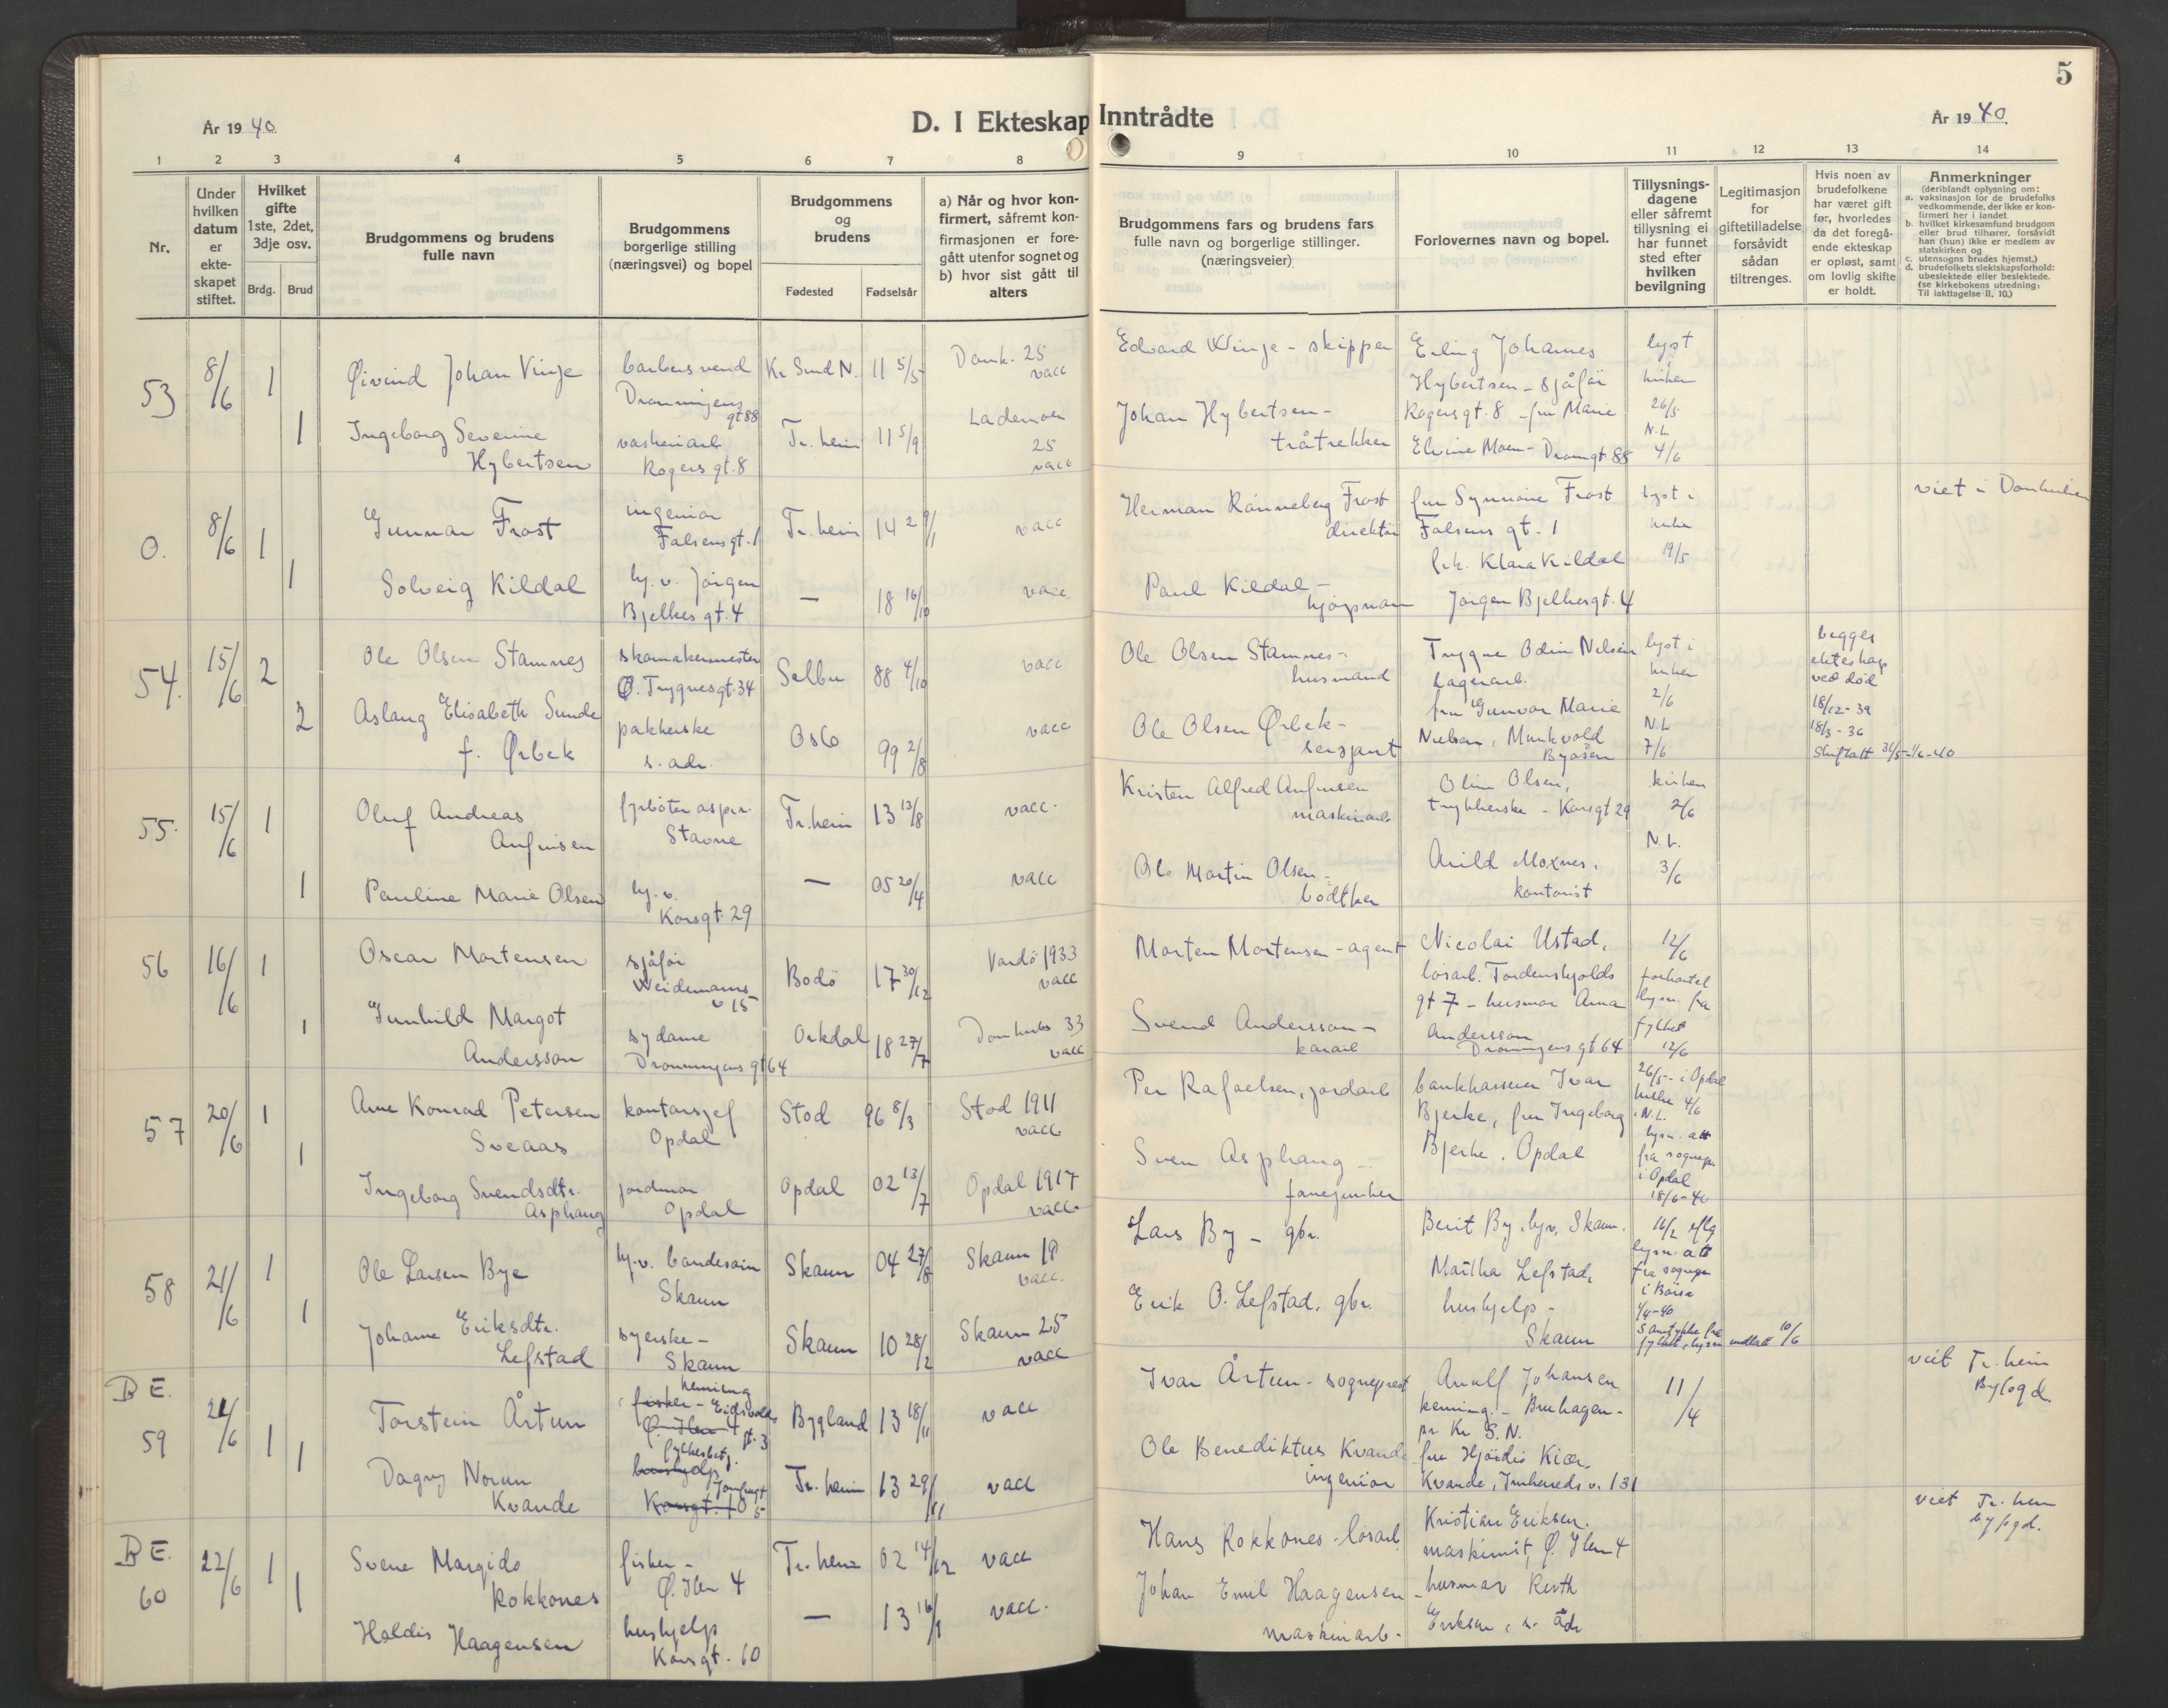 5
År 1940
D. I Ekteskap Inntrådte
År 1940.
1 2 3 4 5 6 7 8 9 10 11 12 13 14
Nr.
Under hvilken datum er ekte-skapet stiftet.
Hvilket gifte 1ste, 2det, 3dje osv.
Brdg. Brud
Brudgommens og brudens fulle navn
Brudgommens borgerlige stilling (næringsvei) og bopel
Brudgommens og brudens
Fødested Fødselsår
a) Når og hvor kon-firmert, såfremt kon-firmasjonen er fore-gått utenfor sognet og b) hvor sist gått til alters
Brudgommens fars og brudens fars fulle navn og borgerlige stillinger. (næringsveier)
Forlovernes navn og bopel.
Tillysnings-dagene eller såfremt tillysning ei har funnet sted efter hvilken bevilgning
Legitimasjon for giftetilladelse forsåvidt sådan tiltrenges.
Hvis noen av brudefolkene har været gift før, hvorledes da det foregå-ende ekteskap er opløst, samt om lovlig skifte er holdt.
Anmerkninger
(deriblandt oplysning om:
a. vaksinasjon for de brudefolks vedkommende, der ikke er kon-firmert her i landet
b. hvilket kirkesamfund brudgom eller brud tilhører, forsåvidt han (hun) ikke er medlem av statskirken og
c. utensogns brudes hjemst.)
d. brudefolkets slektskapsforhold: ubeslektede eller beslektede.
(se kirkebokens utredning: Til iakttagelse II, 10.)
53 8/6 1 Øivind Johan Vinje barbersvend Dronningens gt 88 Kr Sund N. 11 5/5 Domk. 25 vacc Edvard Winje - skipper Erling Johannes lyst i kirken
1 Ingeborg Severine Hybertsen vaskeriarb Rogers gt. 8 Tr.heim 11 5/9 Lademoen 25 vacc Johan Hybertsen - tråtrekker
Hybertsen - sjåfør Rogersgt. 8 - fru Marie Elvine Moen - Dronngt 88 26/5 N.L 4/6
O. 8/6 1 Gunnar Frost ingeniør Falsens gt. 1 Tr.heim 14 29/1 vacc Herman Rønneberg Frost direktør fru Synnøve Frost Falsens gt. 1 lyst i kirken 19/5 viet i Domkirken
1 Solveig Kildal hj. v. Jørgen Bjelkes gt. 4 — 18 16/10 vacc Paul Kildal - kjøpmann frk. Klara Kildal Jørgen Bjelkesgt. 4
54. 15/6 2 Ole Olsen Stamnes skomakermester Ø. Trygvesgt. 34 Selbu 88 4/10 vacc Ole Olsen Stamnes - husmand Trygve Odin Nilsen lagerarb. lyst i kirken 2/6 begges ekteskap ved død
2 Aslaug Elisabeth Sunde f. Ørbek pakkerske s. adr. Oslo 99 2/8 vacc Ole Olsen Ørbek - sersjant fru Gunvor Marie Nielsen, Munkvold Byåsen N.L 7/6 18/12-39 18/3-36
55. 15/6 1 Oluf Andreas Anfinsen fyrbøter aspir. Stavne Tr.heim 13 13/8 vacc. Kristen Alfred Anfinsen maskinarb Olive Olsen, trykkerske - Korsgt 29 kirken 2/6
1 Pauline Marie Olsen hj. v. Korsgt. 29 — 05 20/4 vacc Ole Martin Olsen - bødtker Arild Moxnes, kontorist N.L. 3/6
56 16/6 1 Oscar Mortensen sjåfør Weidemanns v 15 Bodø 17 30/12 Vardø 1933 vacc Morten Mortensen - agent Nicolai Ustad, løsarb. Tordenskjolds gt 7 - husmor Anna 12/6
1 Gunhild Margot Andersson sydame Dronningens gt 64 Orkdal 18 27/7 Domkirk 33 vacc Svend Andersson - Andersson Dronningens gt 64 lysn. fra fylket 12/6
57 20/6 1 Arne Konrad Petersen Sveaas kontorsjef Opdal Stod 96 8/3 Stod 1911 vacc Per Rafaelsen, jordarb bankkasserer Ivar Bjerke, fru Ingeborg Bjerke. Opdal 26/5 - i Opdal kirke 4/6 i N.L.
1 Ingeborg Svendsdtr. Asphaug jordmor Opdal Opdal 02 13/7 Opdal 1917 vacc. Sven Asphaug - fanejunker lysn. att fra sognepr. i Opdal 18/6-40
58 21/6 1 Ole Larsen Bye hj. v. landesain Skaun Skaun 04 27/8 Skaun 19 vacc. Lars By - gbr. Berit By, hjv. Skaun. lysn. att fra sognepr i Børsa 4/4-40
1 Johanne Eriksdtr. Lefstad syerske - Skaun Skaun 10 28/2 Skaun 25 vacc Erik O. Lefstad, gbr. Martha Lefstad, hushjelp - Skaun 10/6
BE. 59 21/6 1 Torstein Årtun fisker - Eidsvolds gt. 3 Ø. Ilen 4 Bygland 13 18/11 vacc Ivar Årtun - sogneprest Arnulf Johansen - Bruhagen - pr Kr S.N. 11/4 viet Tr.heim Byfogd.
1 Dagny Norun Kvande hushjelp Korsgt. 10 Tr.heim 13 29/11 vacc Ole Benediktus Kvande ingeniør fru Hjørdis Kiær Kvande, Innhereds v. 131
BE. 60 22/6 1 Svene Margido Rokkones fisker - Ø. Ilen 4 Tr.heim 02 14/12 vacc Hans Rokkones - løsarb Kristian Eriksen. maskinist, Ø. Ilen 4 viet Tr.heim byfogd.
1 Haldis Haagensen hushjelp Korsgt. 10 — 13 16/9 vacc. Johan Emil Haagensen - maskinarb. husmor Ruth Eriksen, s. adr